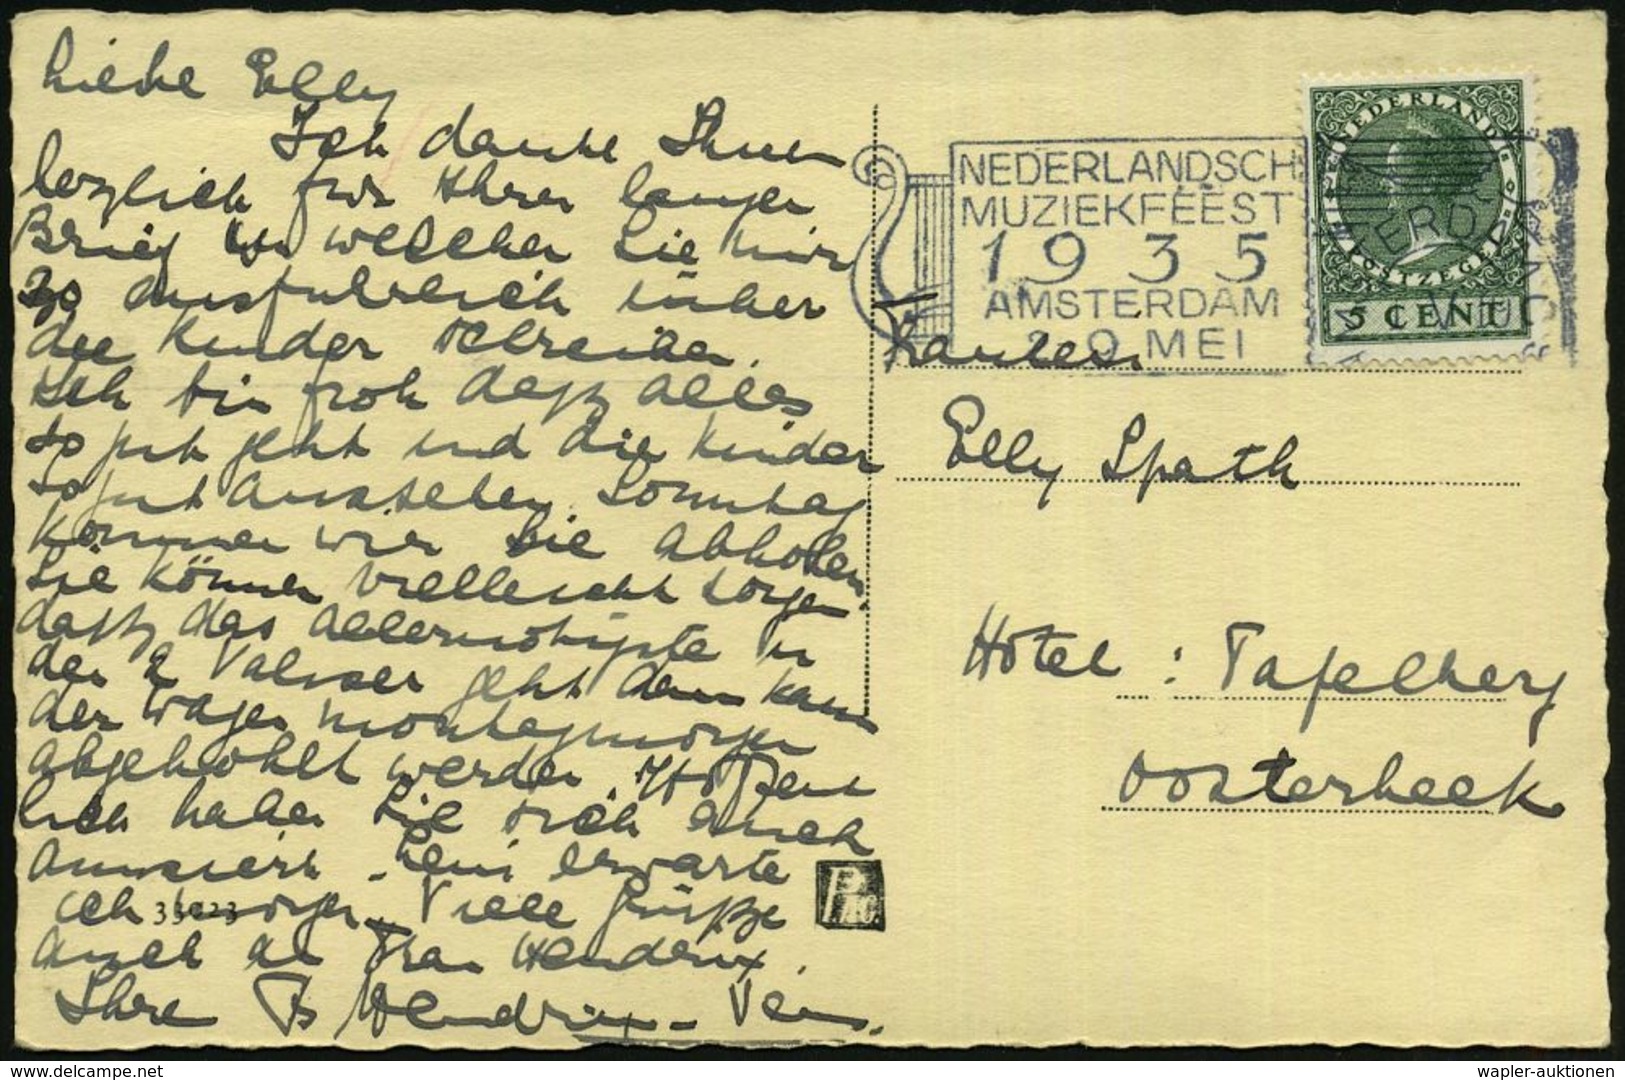 Liebe Elly
Ich danke Ihnen
herzlich für Ihren langen
Brief in welchen Sie mir
so ausfuhrlich über
die Kinder schreiben.
Ich bin froh dasz alles
so gut geht und die Kinder
so gut aussehen. Sonntag
kommen wir Sie abholen.
Sie können vielleicht sorgen
dasz das allernötigste in
den 2 Valiser geht dann kann
der Wagen montagmorgen
abgehohlt werden. Hoffent
lich haben Sie sich auch
amusiert. Leni erwarte
ich morgen. Viele Grüsze
auch an Frau Hendrix.
Ihre Hendrix-
33023
NEDERLANDSCH
MUZIEKFEEST
1935
AMSTERDAM
2 9 MEI
NEDERLAND
POSTZEGEL
5 CENT
Elly Spath
Hotel : Tafelberg
Oosterbeek
wapler-auktionen